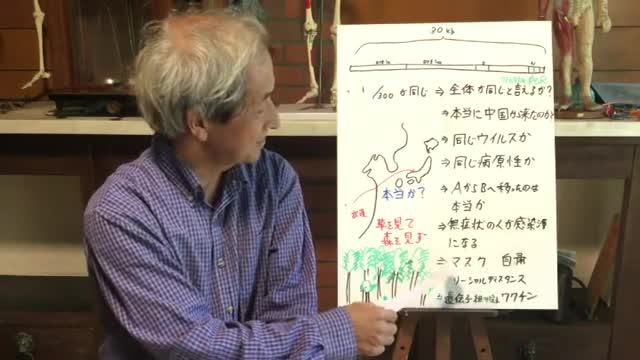 30 kb
1/300が同じ ⇒ 全体が同じと言えるか?
⇒本当に中国から来たのか?
⇒同じウイルスか
⇒同じ病原性か
本当か?
⇒AからBへ移ったのは
本当か
武漢
葉を見て
森を見ず
⇒無症状の人が感染源
になる
⇒マスク 自粛
ソーシャルディスタンス
⇒遺伝子組 ワクチン